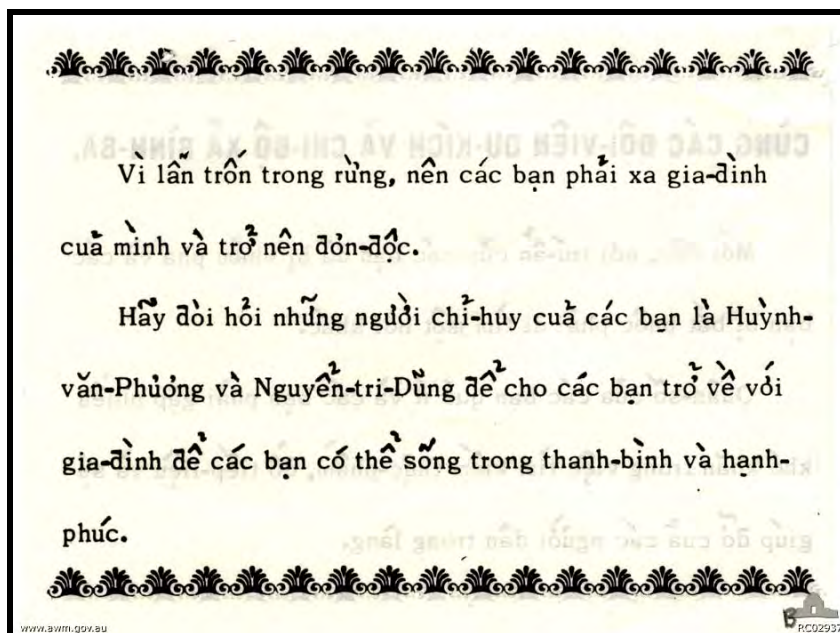 Vì lẫn trốn trong rừng, nên các bạn phải xa gia-đình
cuả mình và trở nên đỏn-độc.
Hãy đòi hỏi những người chỉ-huy cuả các bạn là Huỳnh-
văn-Phủỏng và Nguyển-tri-Dũng để cho các bạn trở về với
gia-đình để các bạn có thể sống trong thanh-bình và hạnh-
phúc.
B
www.awm.gov.au